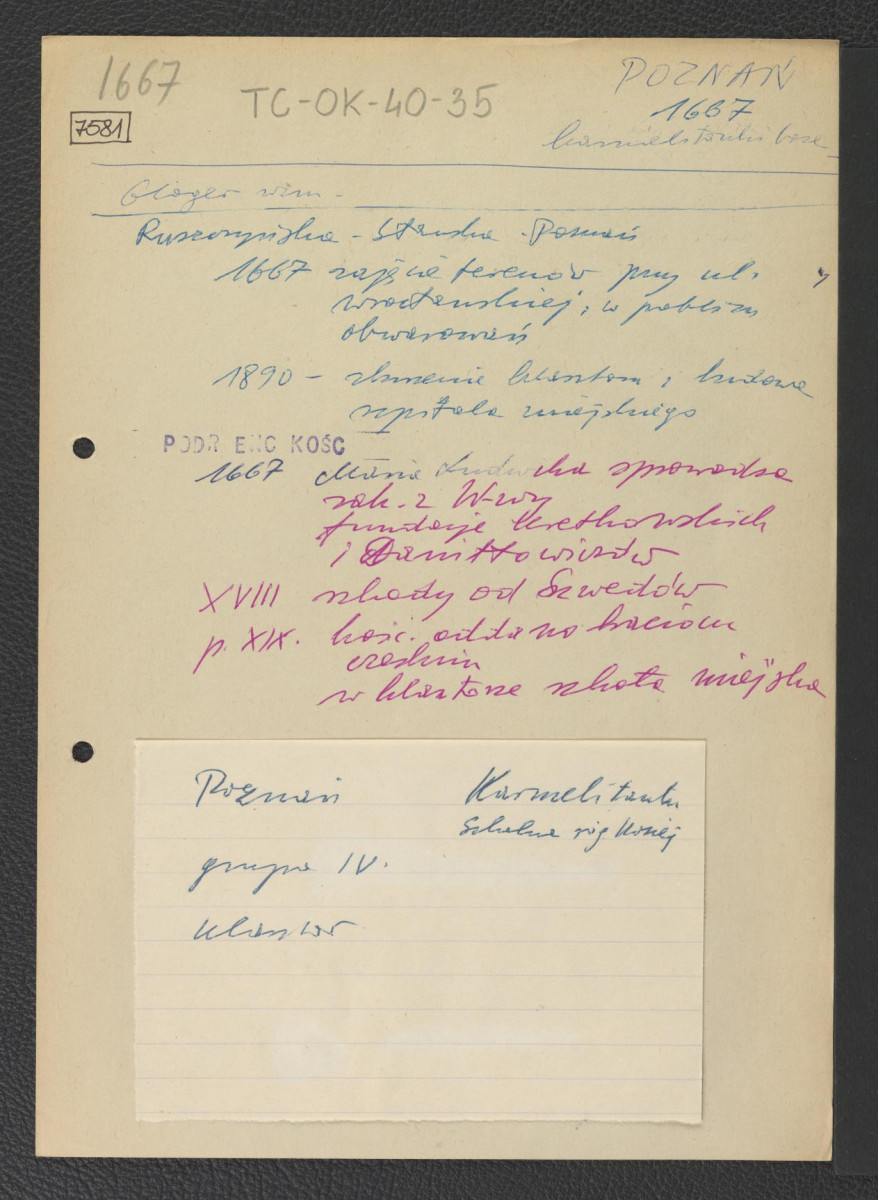 1667
TC-OK-40-35
7581
POZNAŃ
1667
karmelitanki bose
Gloger wzm.
Ruszczyńska - Sławska - Poznań
1667 zajęcie terenów przy ul.
wrocławskiej, w pobliżu
obwarowań
1890 - zburzenie klasztoru i budowa
szpitala miejskiego
PODR ENC KOŚC
1667 Maria Ludwika sprowadza
zak. z W-wy
fundacje Kretkowskich
i Daniłłowiczów
XVIII szkody od Szwedów
p. XIX. kość. oddano braciom
czeskim
w klasztorze szkoła miejska
Poznań Karmelitanki
Szkolna róg Koziej
grupa IV.
klasztor